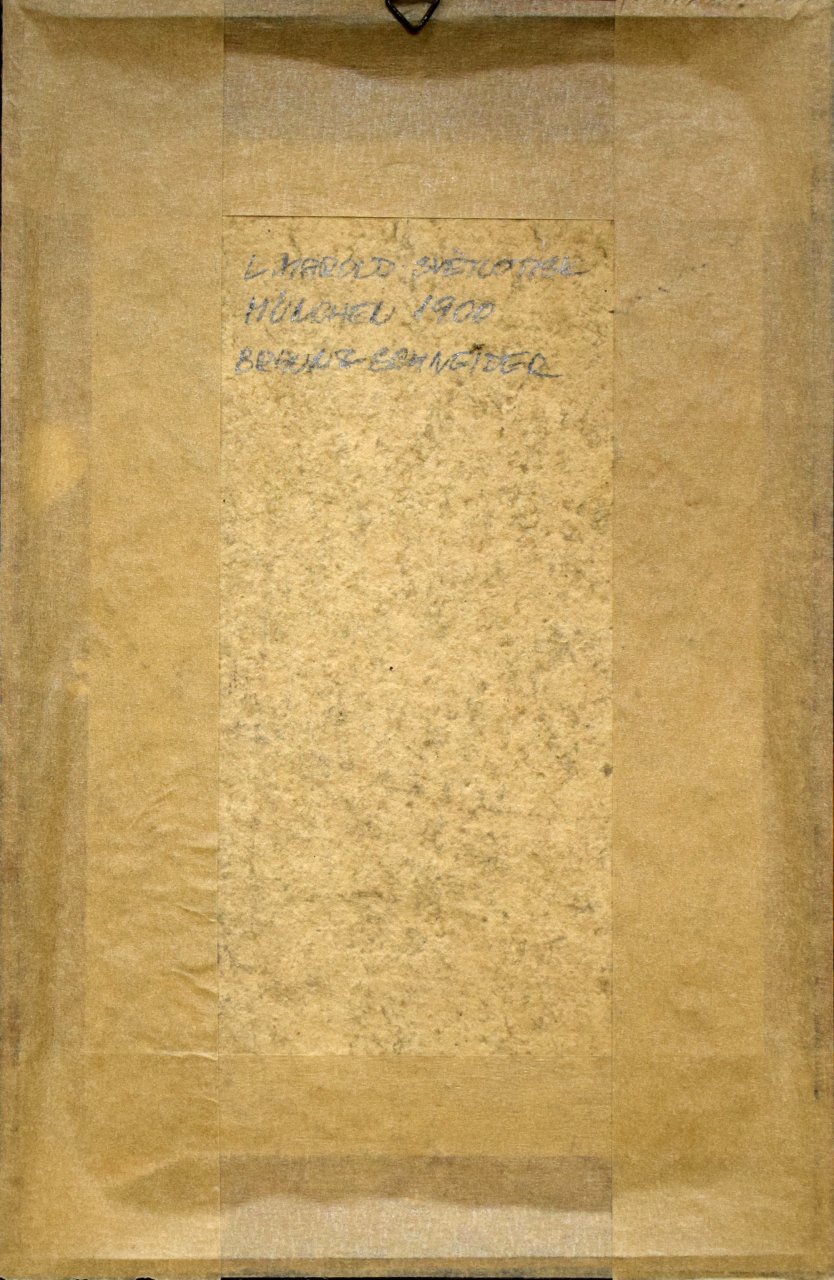 L MAROLD SVĚTLOTISK
MÜNCHEN 1900
BRAUN & SCHNEIDER